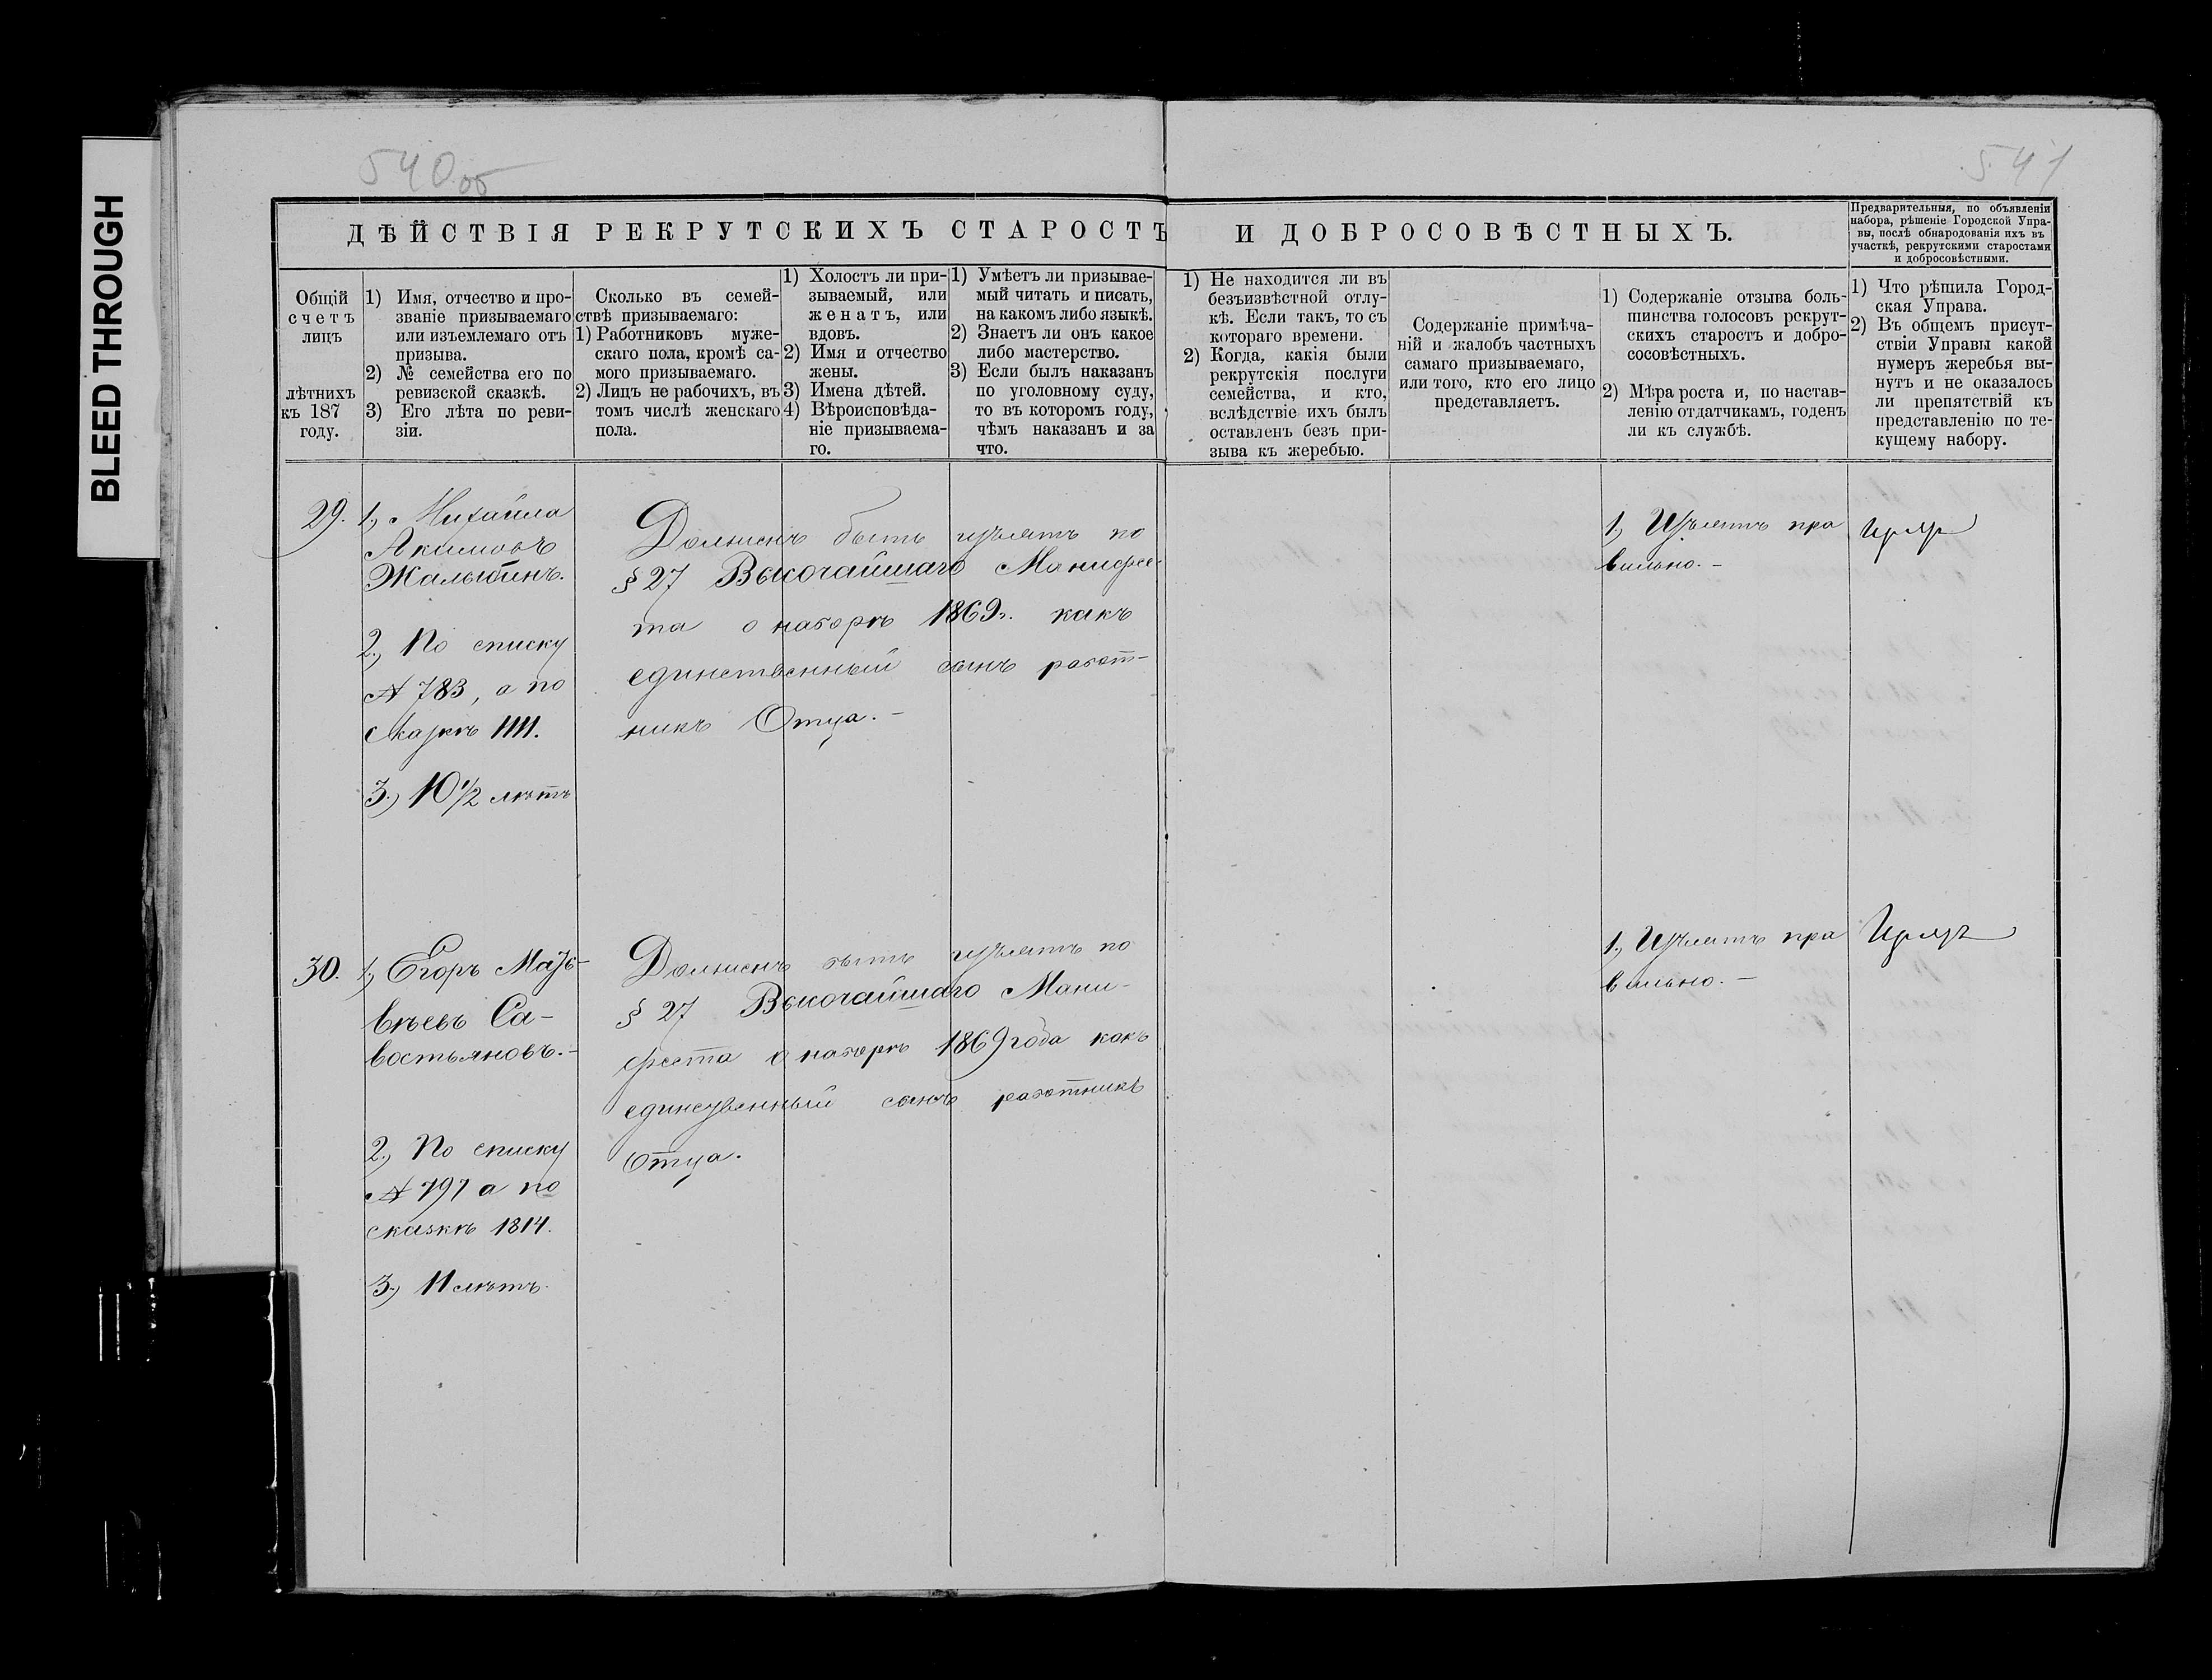 BLEED THROUGH
540 об
541
ДѢЙСТВІЯ РЕКРУТСКИХЪ СТАРОСТЪ И ДОБРОСОВѢСТНЫХЪ.
Предварительныя, по объявленіи
набора, рѣшеніе Городской Упра-
вы, послѣ обнародованія ихъ въ
участкѣ, рекрутскими старостами
и добросовѣстными.
Общій
счетъ
лицъ
лѣтнихъ
къ 187
году.
1) Имя, отчество и про-
званіе призываемаго
или изъемлемаго отъ
призыва.
2) № семейства его по
ревизской сказкѣ.
3) Его лѣта по реви-
зіи.
Сколько въ семей-
ствѣ призываемаго:
1) Работниковъ муже-
скаго пола, кромѣ са-
мого призываемаго.
2) Лицъ не рабочихъ, въ
томъ числѣ женскаго
пола.
1) Холостъ ли при-
зываемый, или
женатъ, или
вдовъ.
2) Имя и отчество
жены.
3) Имена дѣтей.
4) Вѣроисповѣда-
ніе призываема-
го.
1) Умѣетъ ли призывае-
мый читать и писать,
на какомъ либо языкѣ.
2) Знаетъ ли онъ какое
либо мастерство.
3) Если былъ наказанъ
по уголовному суду,
то въ которомъ году,
чѣмъ наказанъ и за
что.
1) Не находится ли въ
безъизвѣстной отлу-
кѣ. Если такъ, то съ
котораго времени.
2) Когда, какія были
рекрутскія послуги
семейства, и кто,
вслѣдствіе ихъ былъ
оставленъ безъ при-
зыва къ жеребью.
Содержаніе примѣча-
ній и жалобъ частныхъ
самаго призываемаго,
или того, кто его лицо
представляетъ.
1) Содержаніе отзыва боль-
шинства голосовъ рекрут-
скихъ старостъ и добро-
сосовѣстныхъ.
2) Мѣра роста и, по настав-
ленію отдатчикамъ, годенъ
ли къ службѣ.
1) Что рѣшила Город-
ская Управа.
2) Въ общемъ присут-
ствіи Управы какой
нумеръ жеребья вы-
нутъ и не оказалось
ли препятствій къ
представленію по те-
кущему набору.
29.
1, Михайла
Акимовъ
Жалыбинъ.
2, По списку
№ 783, а по
сказкѣ 1111.
3, 10 1/2 лѣтъ
Должженъ быть изъятъ по
§ 27 Высочайшаго Манифес-
та о наборѣ 1869 г. какъ
единственный сынъ работ-
никъ Отца. –
1, Изъятъ пра
вильно. –
30.
1, Егоръ Мат-
вѣевъ Са-
востьяновъ. –
2, По списку
№ 797 а по
сказкѣ 1814.
3, 11 лѣтъ.
Долженъ быть изъятъ по
§ 27 Высочайшаго Мани-
феста о наборѣ 1869 года какъ
единственный сынъ работникъ
Отца.
1, Изъятъ пра
вильно. –